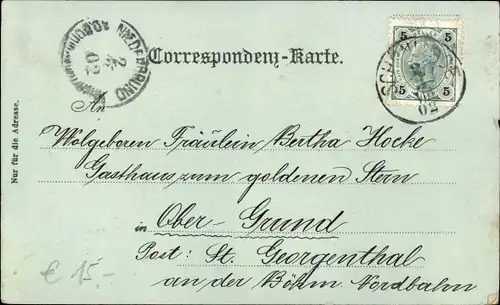 NIEDERGRUND
24
02
Correspondenz-Karte.
5 5
5 5
02
An
Nur für die Adresse.
Wolgeboren Fräulein Bertha Hocke
Gasthaus zum goldenen Stern
in Ober-Grund
Post: St. Georgenthal
an der Böhm. Nordbahn
€ 15.-